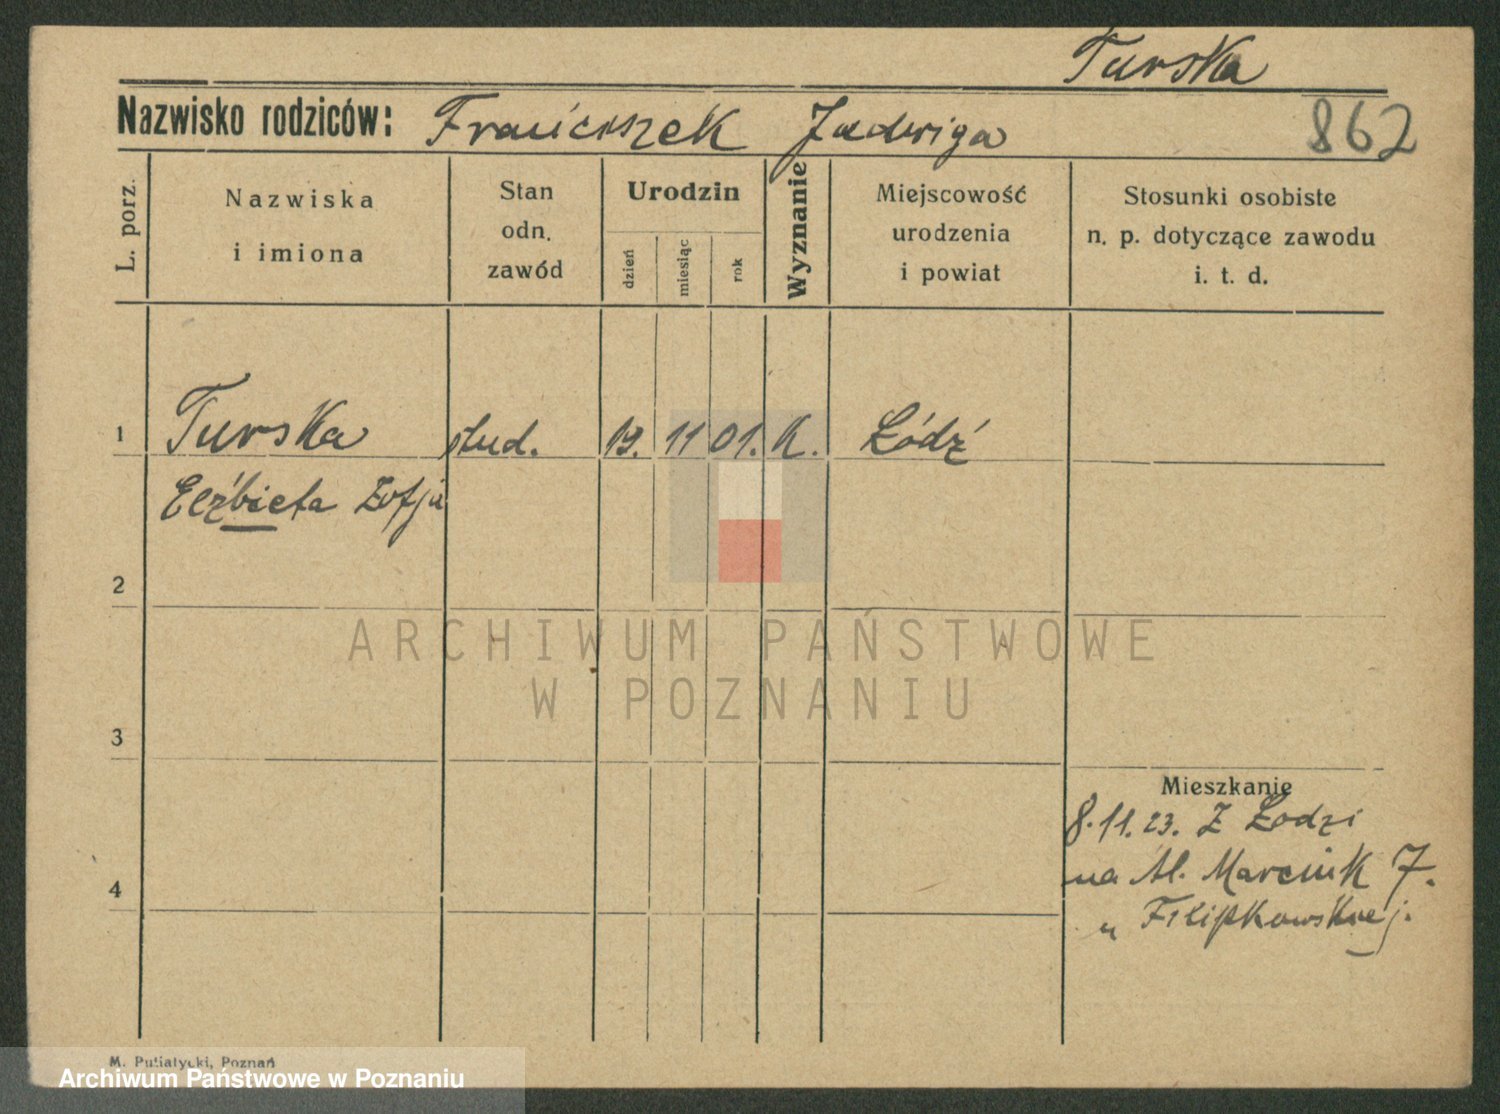 Turska
Nazwisko rodziców: Franciszek Jadwiga
862
L. porz.
Nazwiska
i imiona
Stan
odn.
zawód
Urodzin
dzień
miesiąc
rok
Wyznanie
Miejscowość
urodzenia
i powiat
Stosunki osobiste
n. p. dotyczące zawodu
i. t. d.
1 Turska stud. 19. 11 01. K. Łódź
Elżbieta Zofja
2
ARCHIWUM PAŃSTWOWE
W POZNANIU
3
Mieszkanie
8.11.23. Z Łodzi
4 na Al. Marcink 7.
u Filipkowskiej.
M. Putiatycki, Poznań
Archiwum Państwowe w Poznaniu